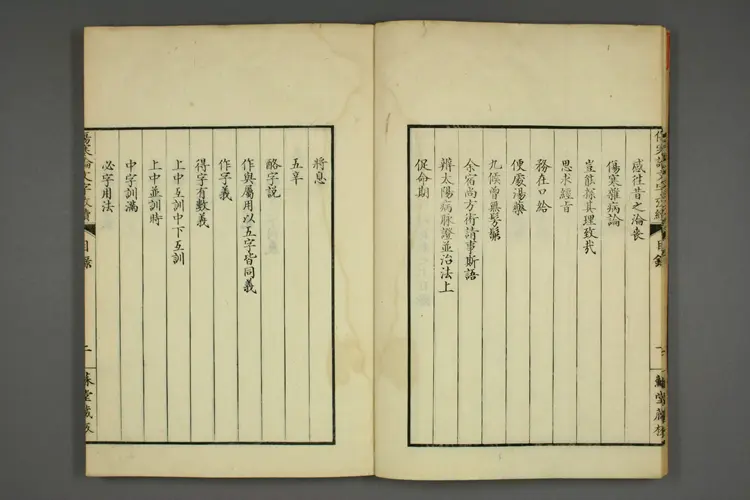 感往昔之淪喪
傷寒雜病論
豈能探其理致哉
思求經旨
務在口給
便處湯藥
九候曾無髣髴
余宿尚方術請事斯語
辨太陽病脉證並治法上
促命期
將息
五辛
酪字說
作與屬用以五字皆同義
作字義
得字有數義
上中互訓中下互訓
上中並訓時
中字訓滿
必字用法
傷寒論文字攷續
目錄
二